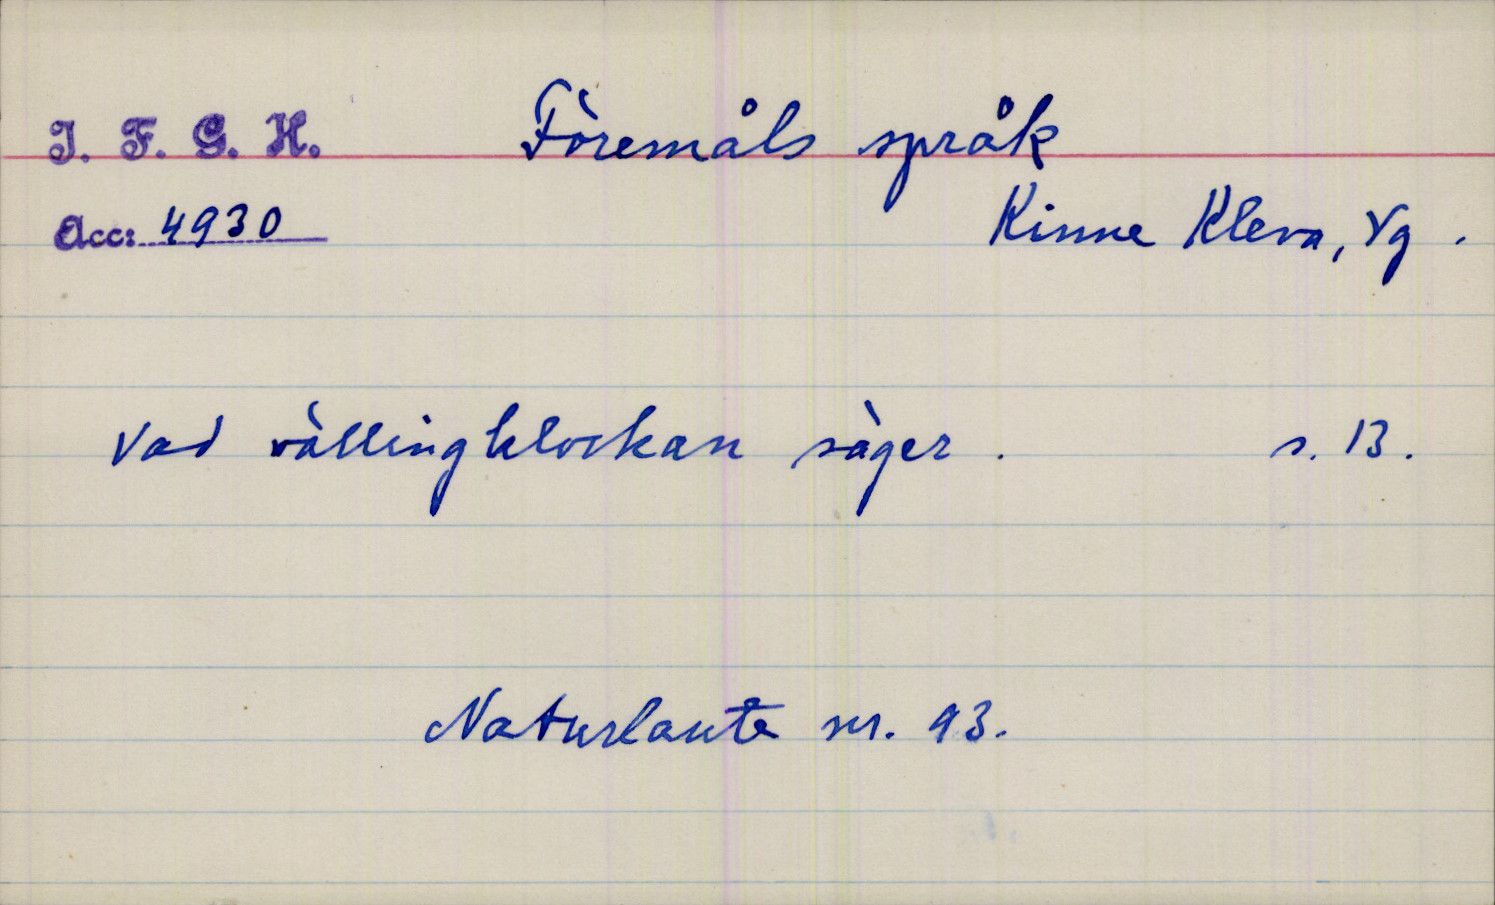 I. F. G. H. Föremåls språk
Acc: 4930 Kinne Kleva, Vg.
Vad vällingklockan säger. s. 13.
Naturlaute nr. 93.